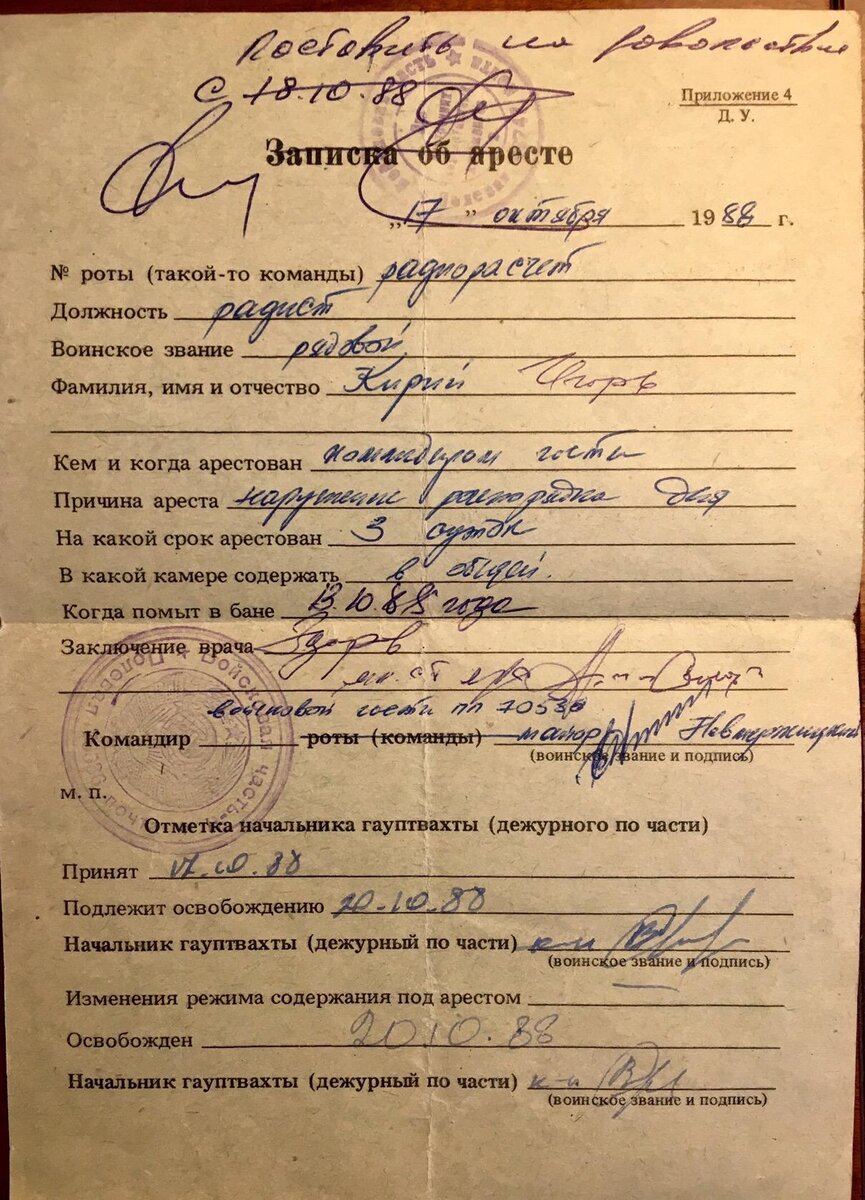 Поставить на довольствие
с 18.10.88
Приложение 4
Д. У.
Записка об аресте
„17” октября 1988 г.
№ роты (такой-то команды) радиорасчет
Должность радист
Воинское звание рядовой
Фамилия, имя и отчество Кирий Игорь
Кем и когда арестован командиром части
Причина ареста нарушение распорядка дня
На какой срок арестован 3 суток
В какой камере содержать в общей.
Когда помыт в бане 13.10.88 года
Заключение врача Здоров
войсковой части пп 70538
Командир роты (команды) майор Невмержицкий
(воинское звание и подпись)
м. п.
Войсковая часть
Отметка начальника гауптвахты (дежурного по части)
Принят 17.10.88
Подлежит освобождению 20.10.88
Начальник гауптвахты (дежурный по части) к-н
(воинское звание и подпись)
Изменения режима содержания под арестом
Освобожден 20.10.88
Начальник гауптвахты (дежурный по части) к-н
(воинское звание и подпись)